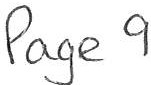 Page 9